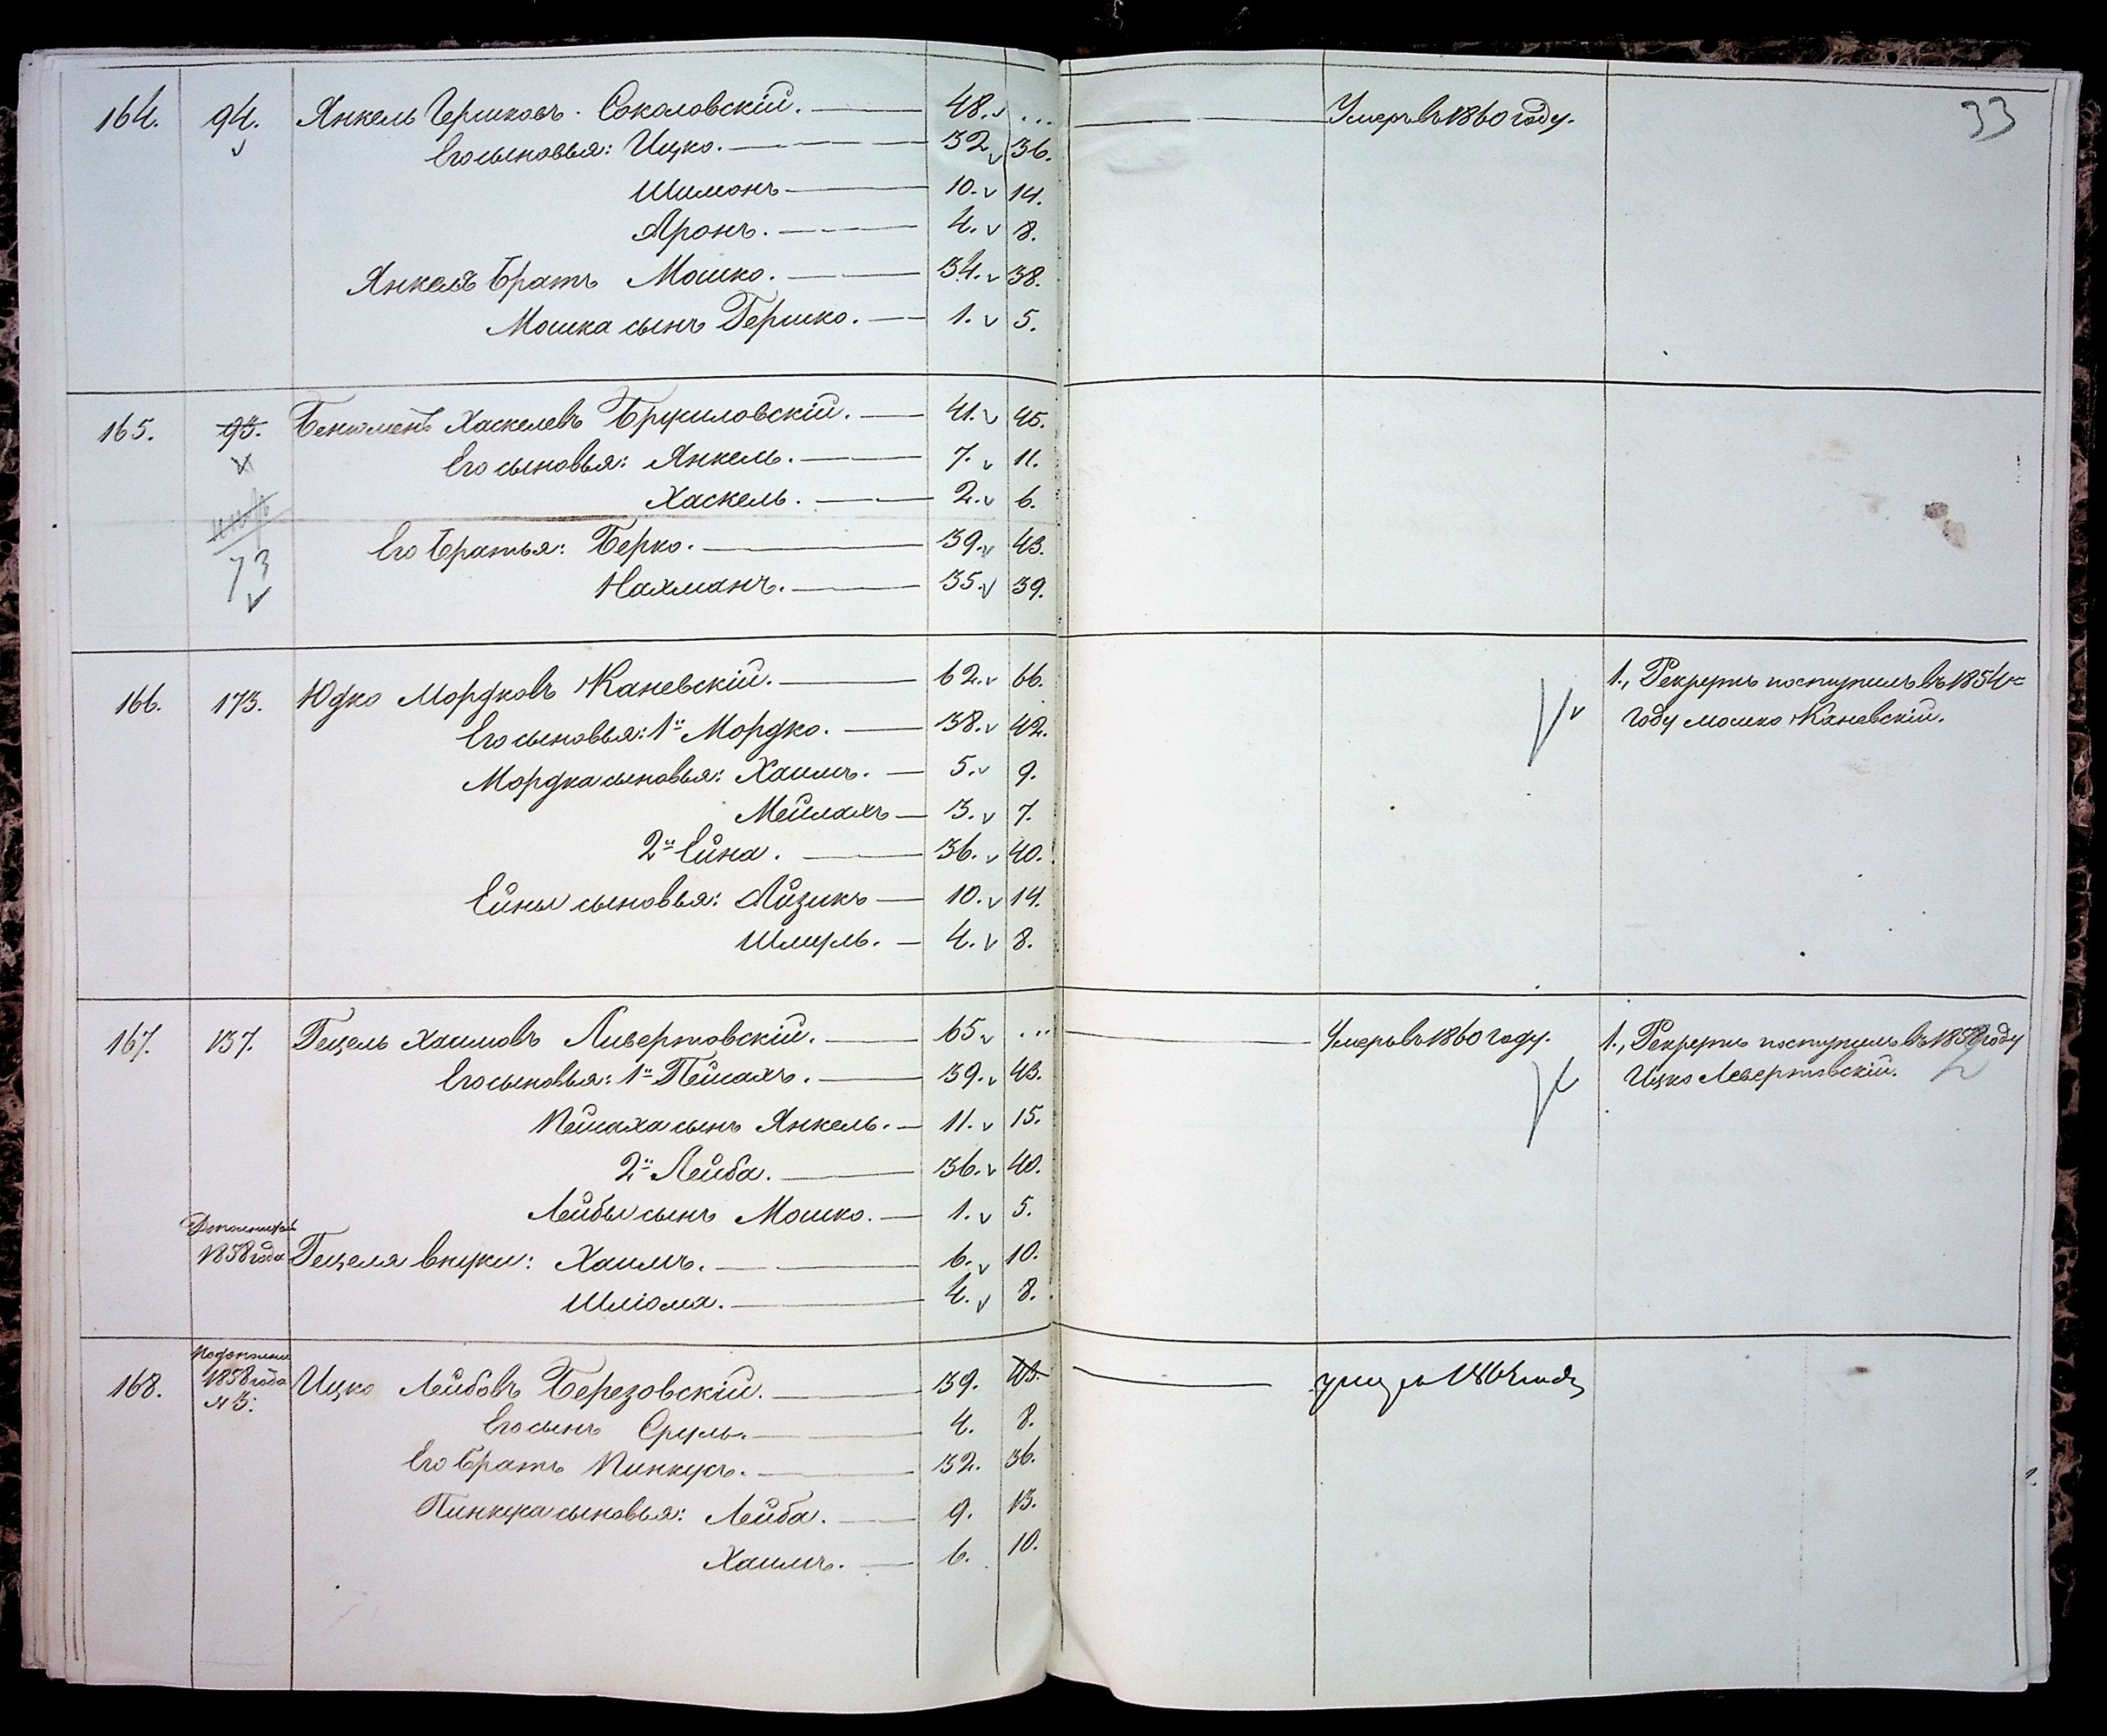 33
164. 94. Янкель Гершковъ Соколовскій. 48. ... Умеръ въ 1860 году.
Его сыновья: Ицко. 32 36.
Шимонъ 10. 14.
Аронъ. 4. 8.
Янкеля братъ Мошко. 34. 38.
Мошка сынъ Гершко. 1. 5.
165. 95. Бенюменъ Хаскелевъ Брусиловскій. 41. 45.
Его сыновья: Янкель. 7. 11.
Хаскель. 2. 6.
Его братья: Берко. 39. 43.
73
Нахманъ. 35. 39.
166. 173. Юдко Мордковъ Каневскій. 62. 66. 1., Рекрутъ поступилъ въ 1854
Его сыновья: 1й Мордко. 38. 42. году Мошко Каневскій.
Мордка сыновья: Хаимъ. 5. 9.
Мейлахъ 3. 7.
2й Ейна. 36. 40.
Ейны сыновья: Айзикъ 10. 14.
Шмуль. 4. 8.
167. 137. Гецель Хаимовъ Ливертовскій. 65 ... Умеръ въ 1860 году. 1., Рекрутъ поступилъ въ 1858 году
Его сыновья: 1й Пейсахъ. 39. 43. Ицко Левертовскій.
Пейсаха сынъ Янкель. 11. 15.
2й Лейба. 36. 40.
Лейбы сынъ Мошко. 1. 5.
1858 года Гецеля внуки: Хаимъ. 6. 10.
Шліома. 4. 8.
168. 1858 года № 3. Ицко Лейбовъ Березовскій. 39. 43.
Его сынъ Сруль. 4. 8.
Его братъ Пинкусъ. 32. 36.
Пинкуса сыновья: Лейба. 9. 13.
Хаимъ. 6. 10.